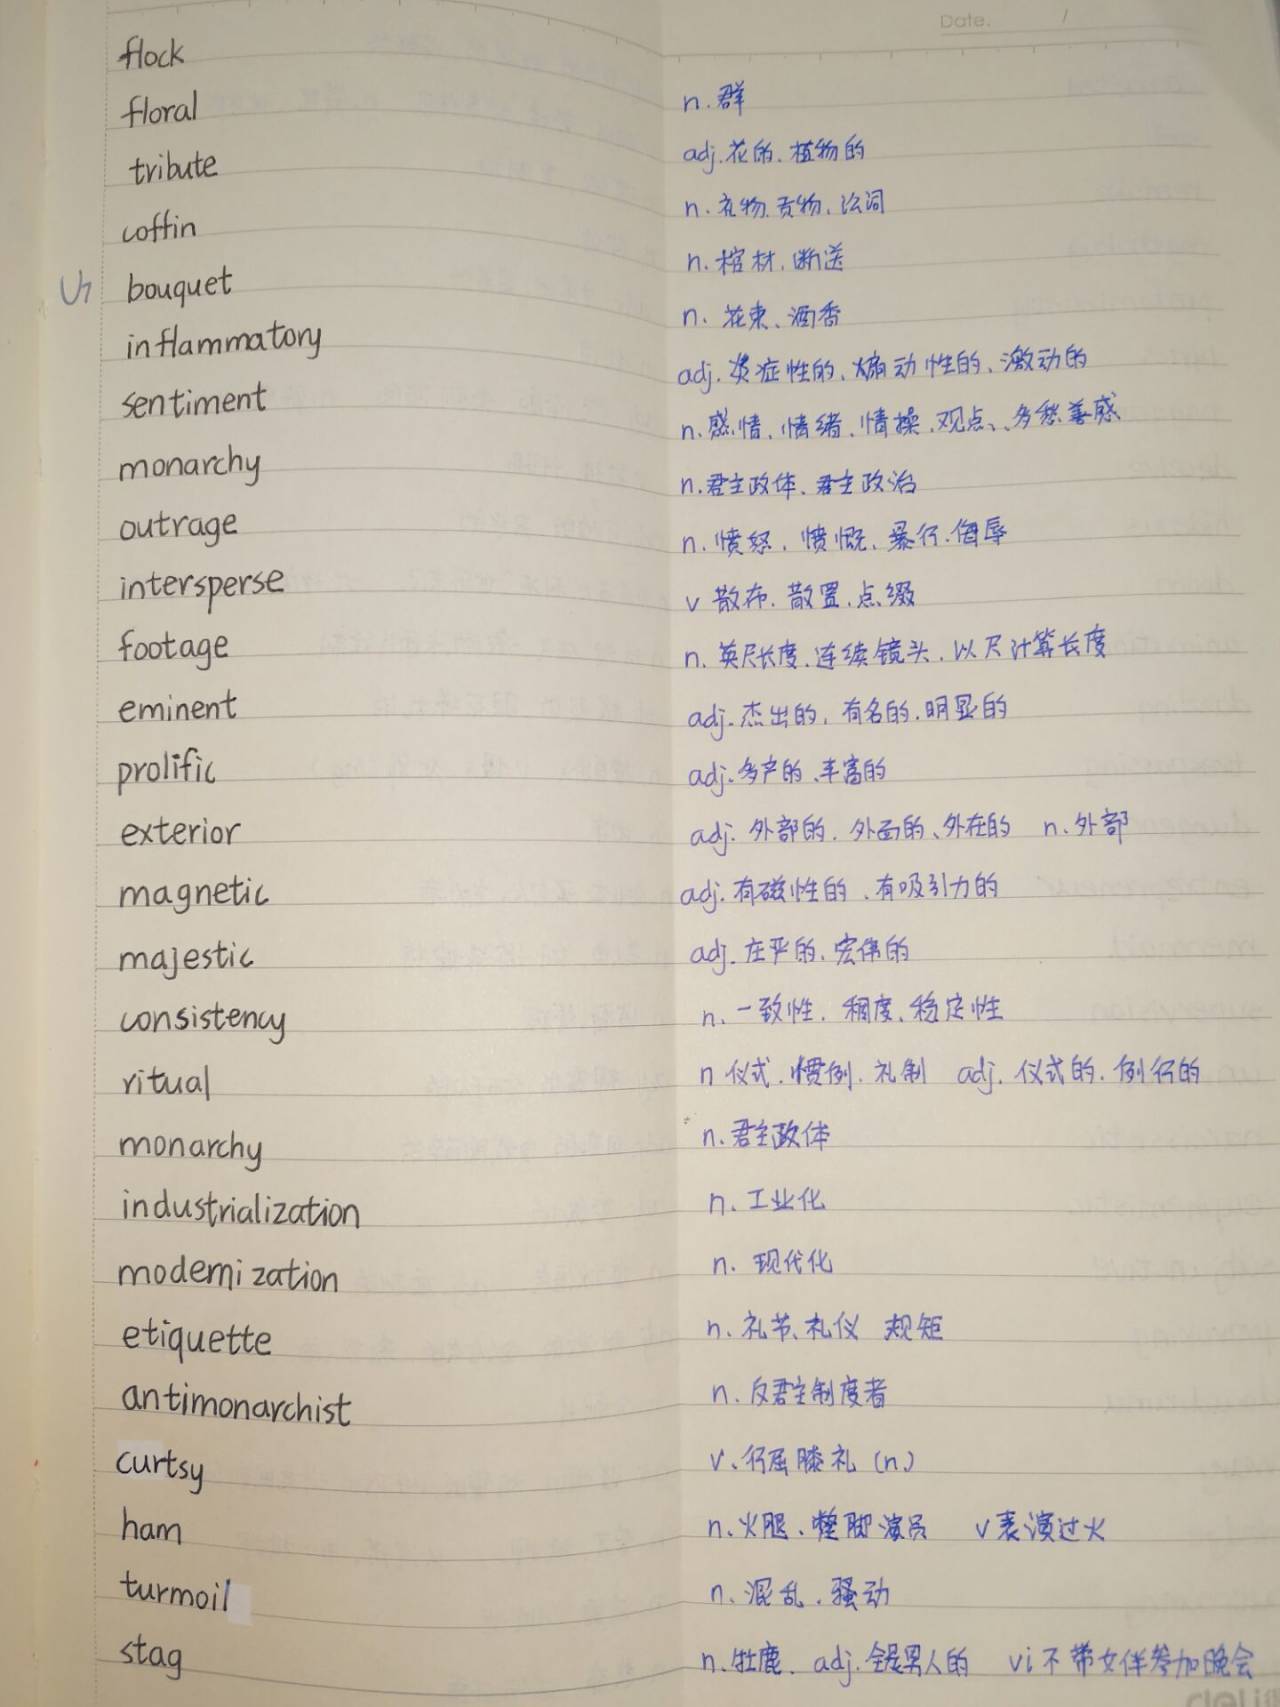 Date. /
flock n. 群
floral adj. 花的. 植物的
tribute n. 礼物. 贡物. 讼词
coffin n. 棺材. 断送
bouquet n. 花束、酒香
inflammatory adj. 炎症性的、煽动性的、激动的
sentiment n. 感情、情绪、情操、观点、多愁善感
monarchy n. 君主政体、君主政治
outrage n. 愤怒、愤慨、暴行. 侮辱
intersperse v 散布. 散置. 点缀
footage n. 英尺长度. 连续镜头. 以尺计算长度
eminent adj. 杰出的, 有名的. 明显的
prolific adj. 多产的、丰富的
exterior adj. 外部的. 外面的、外在的 n. 外部
magnetic adj. 有磁性的、有吸引力的
majestic adj. 庄严的. 宏伟的
consistency n. 一致性. 稠度. 稳定性
ritual n 仪式. 惯例. 礼制 adj. 仪式的. 例行的
monarchy n. 君主政体
industrialization n. 工业化
modernization n. 现代化
etiquette n. 礼节、礼仪 规矩
antimonarchist n. 反君主制度者
curtsy v. 行屈膝礼 (n.)
ham n. 火腿、蹩脚演员 v 表演过火
turmoil n. 混乱. 骚动
stag n. 牡鹿. adj. 全是男人的 vi 不带女伴参加晚会
deli